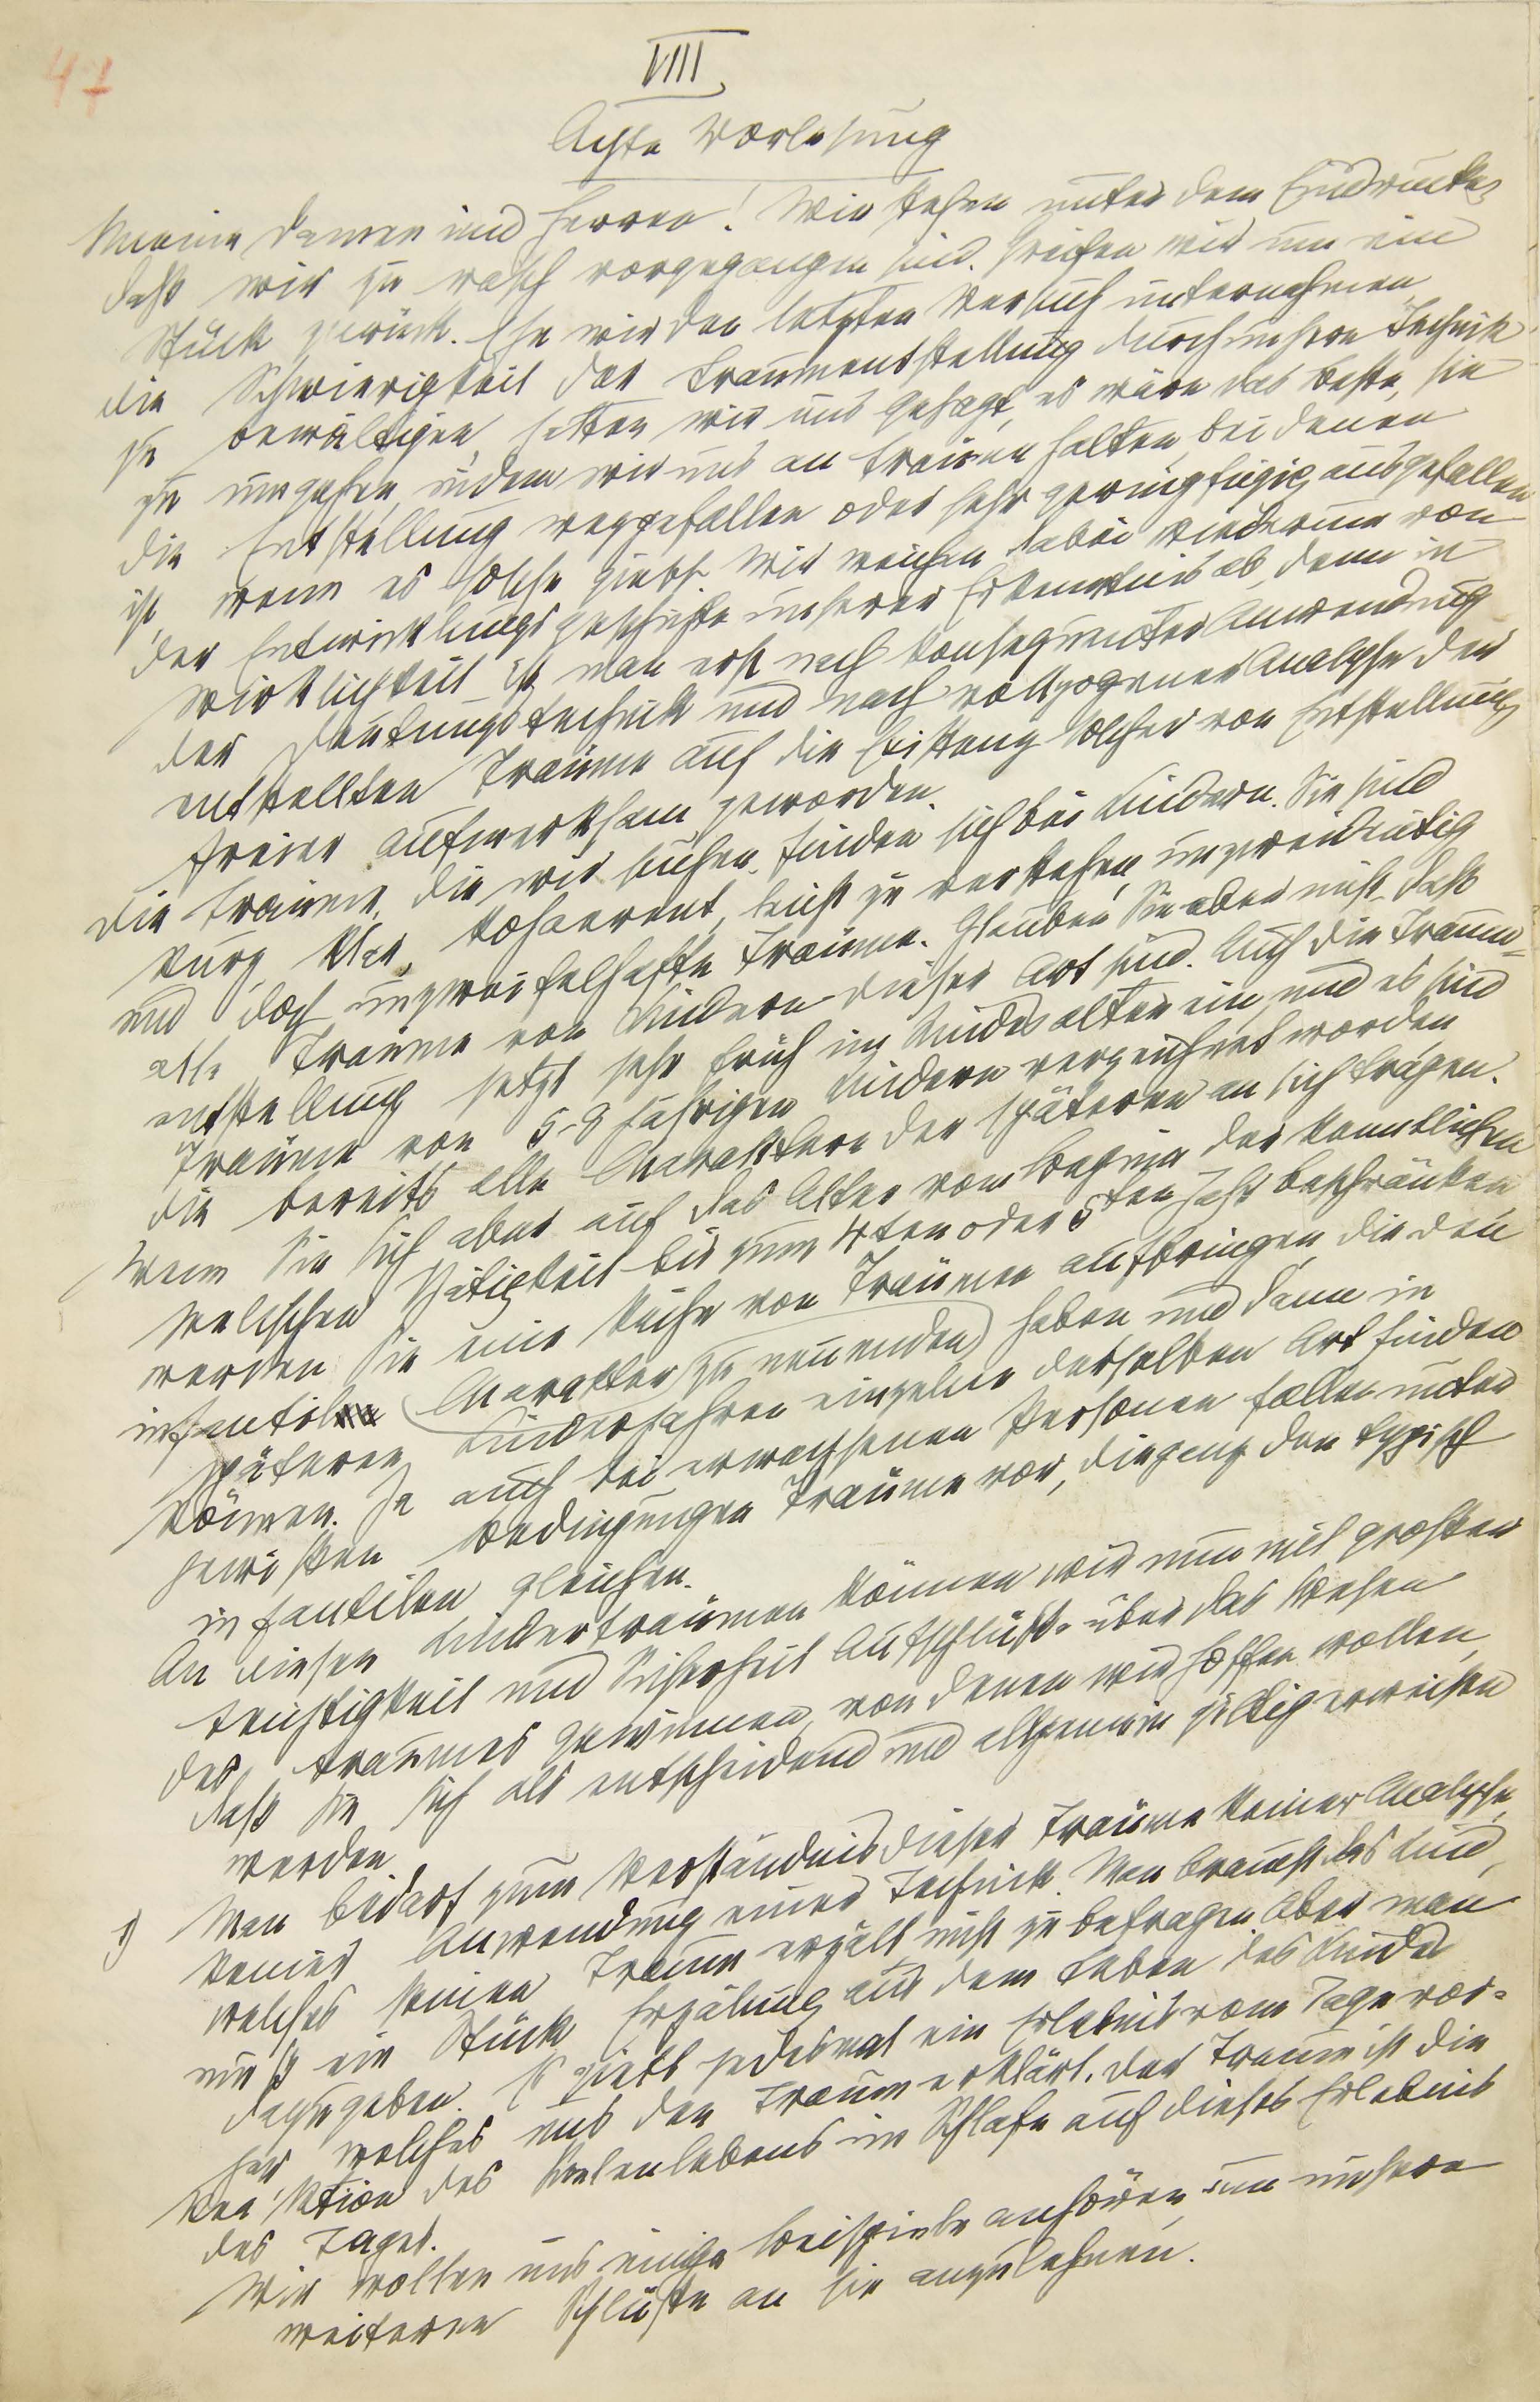 47
VIII
Achte Vorlesung
Meine Damen und Herren! Wir stehen unter dem Eindrucke,
daß wir zu rasch vorgegangen sind. Greifen wir um ein
Stück zurück. Ehe wir den letzten Versuch unternehmen,
die Schwierigkeit der Traumentstellung durch unsere Technik
zu bewältigen, hatten wir uns gesagt, es wäre das beste, sie
zu umgehen, indem wir uns an Träume halten, bei denen
die Entstellung weggefallen oder sehr geringfügig ausgefallen
ist, wenn es solche giebt. Wir weichen dabei wiederum von
der Entwicklungsgeschichte unserer Erkenntnis ab, denn in
Wirklichkeit ist man erst nach konsequenter Anwendung
der Deutungstechnik und nach vollzogener Analyse der
entstellten Träume auf die Existenz solcher von Entstellung
freier aufmerksam geworden.
Die Träume, die wir suchen, finden sich bei Kindern. Sie sind
kurz, klar, kohaerent, leicht zu verstehen, unzweideutig
und doch unzweifelhafte Träume. Glauben Sie aber nicht, daß
alle Träume von Kindern dieser Art sind. Auch die Traum=
entstellung setzt sehr früh im Kindesalter ein, und es sind
Träume von 5-8 jährigen Kindern verzeichnet worden
die bereits alle Charaktere der späteren an sich tragen.
Wenn Sie sich aber auf das Alter vom Beginn der kenntlichen
seelischen Tätigkeit bis zum 4ten oder 5ten Jahr beschränken
werden Sie eine Reihe von Träumen aufbringen, die den
infantil Charakter zu nennenden haben und dann in
späteren Kinderjahren einzelne derselben Art finden
können. Ja auch bei erwachsenen Personen fallen unter
gewissen Bedingungen Träume vor, die ganz den typisch
infantilen gleichen.
An diesen Kinderträumen können wir nun mit großer
Leichtigkeit und Sicherheit Aufschlüsse über das Wesen
des Traumes gewinnen, von denen wir hoffen wollen,
daß sie sich als entscheidend und allgemein giltig erweisen
werden.
1) Man bedarf zum Verständnis dieser Träume keiner Analyse,
keiner Anwendung einer Technik. Man braucht das Kind,
welches seinen Traum erzält, nicht zu befragen. Aber man
muß ein Stück Erzälung aus dem Leben des Kindes
dazugeben. Es giebt jedesmal ein Erlebnis vom Tage vor=
her, welches uns den Traum erklärt. Der Traum ist die
Reaktion des Seelenlebens im Schlafe auf dieses Erlebnis
des Tages.
Wir wollen uns einige Beispiele anhören, um unsere
weiteren Schlüsse an sie anzulehnen.